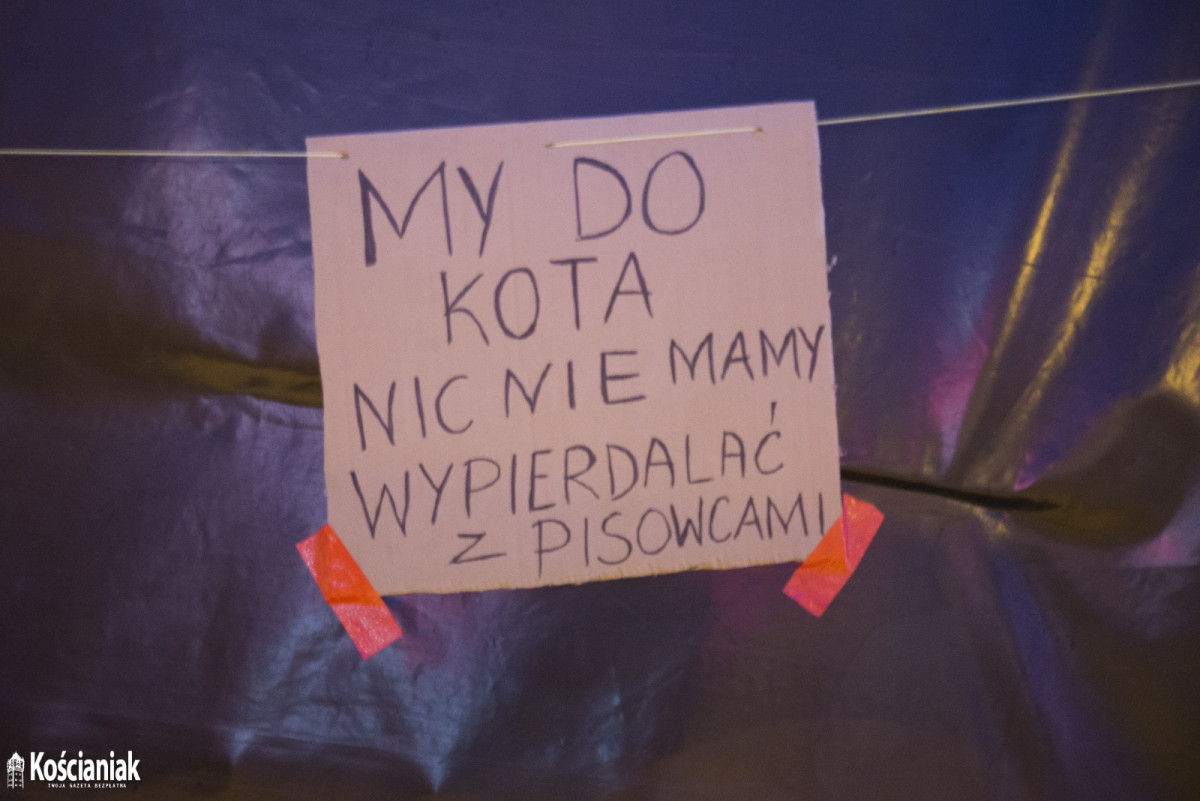 MY DO
KOTA
NIC NIE MAMY
WYPIERDALAĆ
Z PISOWCAMI
Kościaniak
TWOJA GAZETA BEZPŁATNA